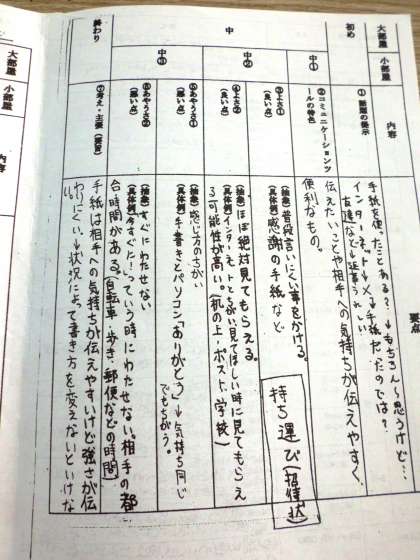 大部屋
小部屋
内容
要点
初め
①話題の提示
手紙を使ったことある?→もちろんと思うけど…
インターネット→メ→手紙だったのでは?
友達など→返事うれしい
中
中①
②コミュニケーションツールの特色
伝えたいことや相手への気持ちが伝えやすく、
便利なもの。
中②
③よさ①
(良い点)
(抽象)普段言いにくい事をかける。
(具体例)感謝の手紙など
④よさ②
(良い点)
(抽象)ほぼ絶対見てもらえる。
(具体例)インターネットとちがい見てほしい時に見てもらえ
る可能性が高い。(机の上・ポスト・学校)
持ち運び(招待状)
中③
⑤あやうさ①
(悪い点)
(抽象)感じ方のちがい
(具体例)手書きとパソコン「ありがとう」→気持ち同じ
でもちがう。
⑥あやうさ②
(悪い点)
(抽象)すぐにわたせない
(具体例)今すぐに!っていう時にわたせない。相手の都
合、時間がある。(自転車・歩き・郵便などの時間)
終わり
⑦考え・主張(提言)
手紙は相手への気持ちが伝えやすいけど強さが伝
わりにくい→状況によって書き方を変えないといけな
い。
大部屋
小部屋
内容